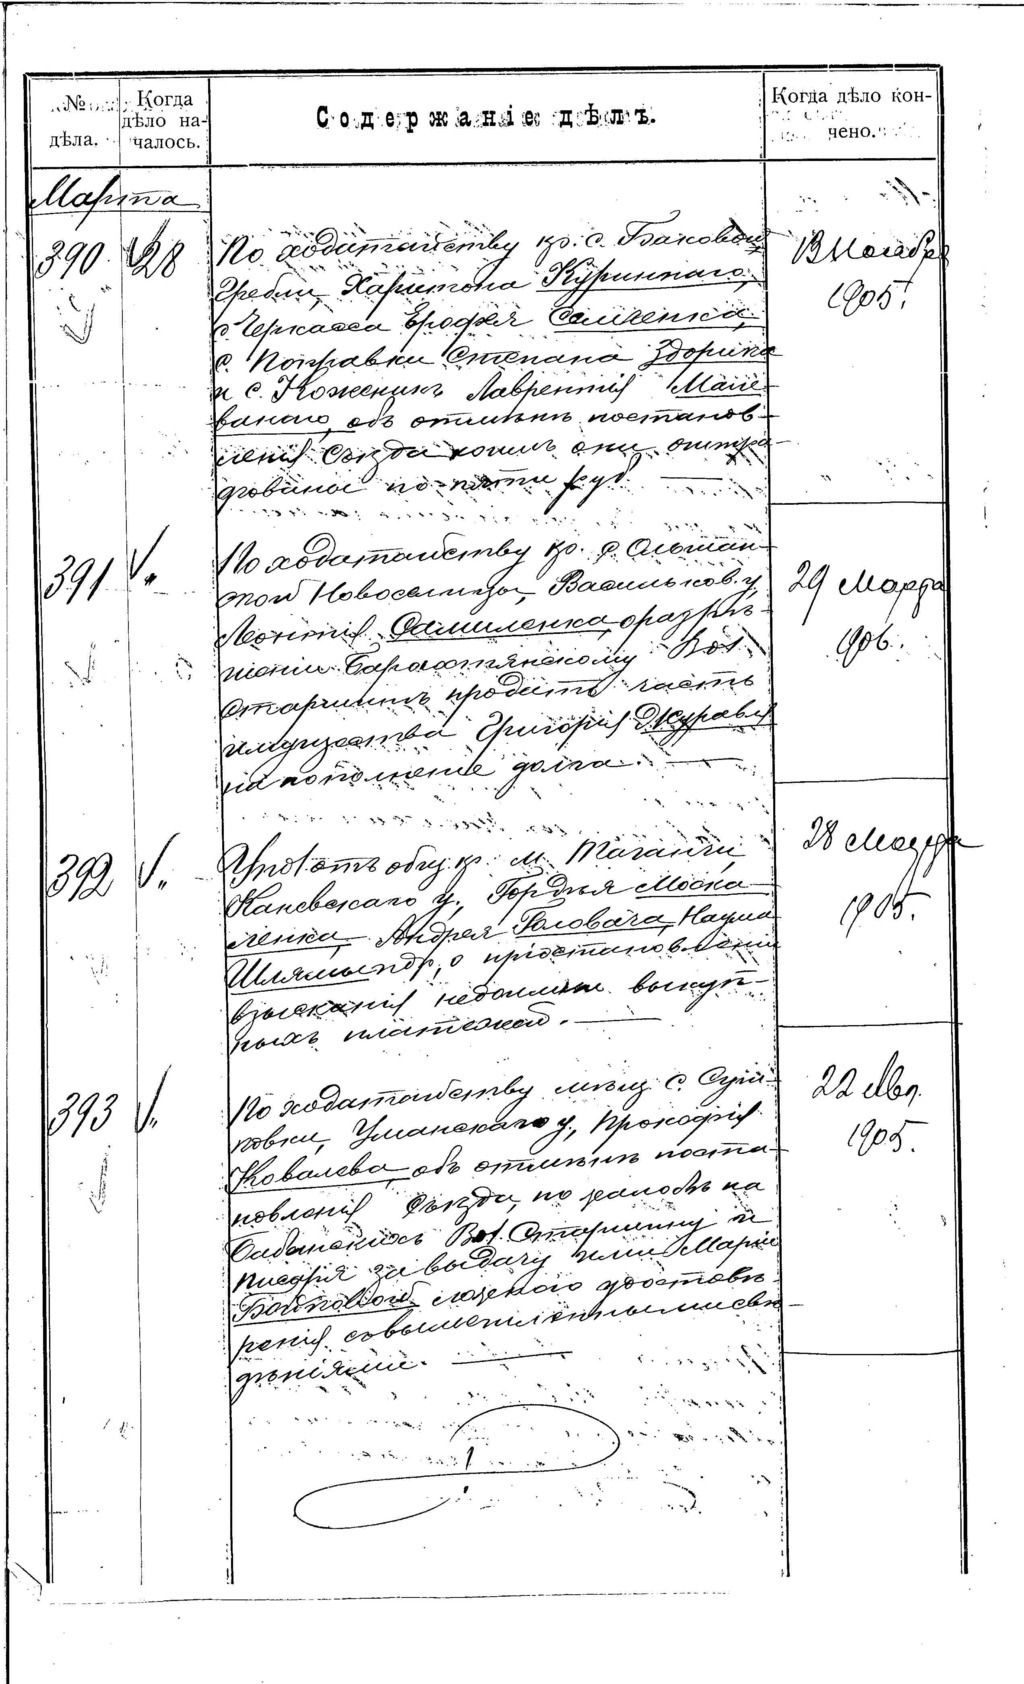 № дѣла.
Когда дѣло на-
чалось.
Содержаніе дѣлъ.
Когда дѣло кон-
чено.
Марта
390 28
По ходатайству кр. с. Баковой
Гребли, Харитона Куриннаго,
г. Черкасса Ерофея
с. Степана Здорика
и с. Лаврентія
объ отмѣнѣ постанов-
ленія Съѣзда коимъ они оштра-
фованы по пяти руб.
Ноября
1905 г.
391
По ходатайству кр. с. Ольшан-
ской Новоселицы, Васильков. у.,
Леонтія Самиленка, о разрѣ-
шеніи Барахтянскому Вол.
Старшинѣ продать часть
имущества Григорія Журавля
на пополненіе долга.
29 Марта
1906.
392
Упол. отъ общ. кр. м. Таганчи,
Каневскаго у., Гордѣя Моска-
ленка, Андрея Головача, Наума
о пріостановленіи
взысканія недоимки выкуп-
ныхъ платежей.
28 Марта
1905.
393
По ходатайству мѣщ. с.
Уманскаго у., Прокофія
Ковалева, объ отмѣнѣ поста-
новленія Съѣзда, по жалобѣ на
Вол. Старшину и
писаря за выдачу ими Маріи
ложнаго удостовѣ-
ренія съ вымышленными свѣ-
дѣніями.
22 Апр.
1905.